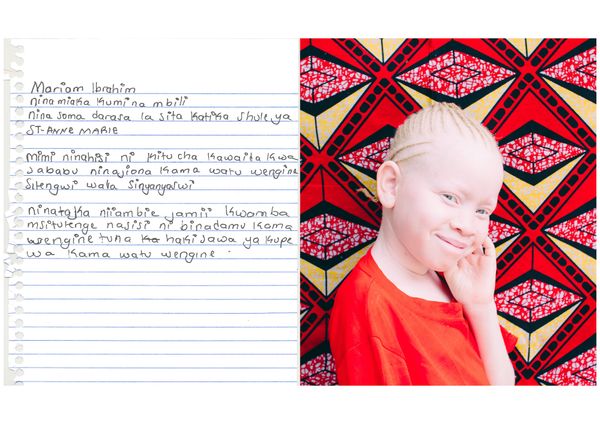 Mariam Ibrahim
nina miaka kumi na mbili
nina soma darasa la sita katika shule ya
ST-ANNE MARIE
mimi ninahisi ni kitu cha kawaita kwa
sababu ninajiona kama watu wengine
sitengwi wala sinyanyaswi
ninatajka niiambie jamii kwomba
msitutenge nasisi ni binadamu kama
wengine tuna haki sawa ya kupe
wa kama watu wengine .